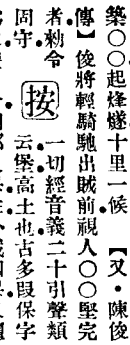 築〇〇起烽燧十里一候【又・陳俊
傳】俊將輕騎馳出賊前視人〇〇堅完
者、勑令 按 一切經音義二十引聲類
固守。 云堡高土也古多叚保字